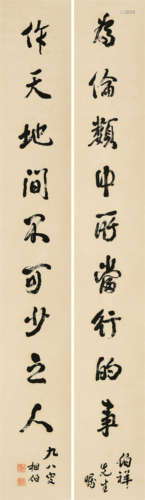 為倫類中所當行的事
伯祥先生囑
作天地間不可少之人
九八叟
相伯